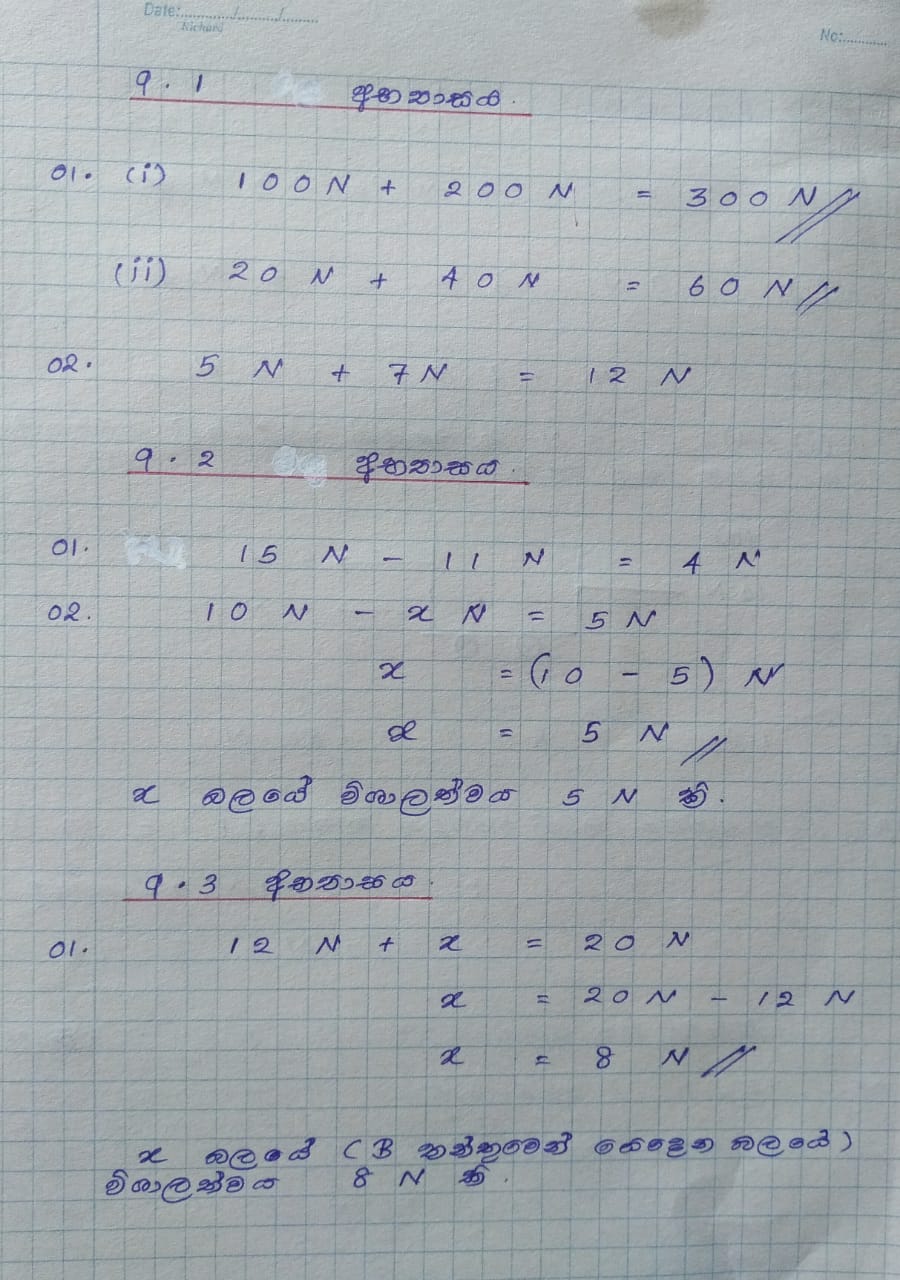 Date:............/............/............
Richard
No:............
9.1 අභ්‍යාසය.
01. (i) 100N + 200 N = 300 N
(ii) 20 N + 40 N = 60 N
02. 5 N + 7N = 12 N
9.2 අභ්‍යාසය.
01. 15 N - 11 N = 4 N
02. 10 N - x N = 5 N
x = (10 - 5) N
x = 5 N
x බලයේ විශාලත්වය 5 N කි.
9.3 අභ්‍යාසය.
01. 12 N + x = 20 N
x = 20 N - 12 N
x = 8 N
x බලයේ (B තන්තුවෙන් යෙදෙන බලයේ)
විශාලත්වය 8 N කි.